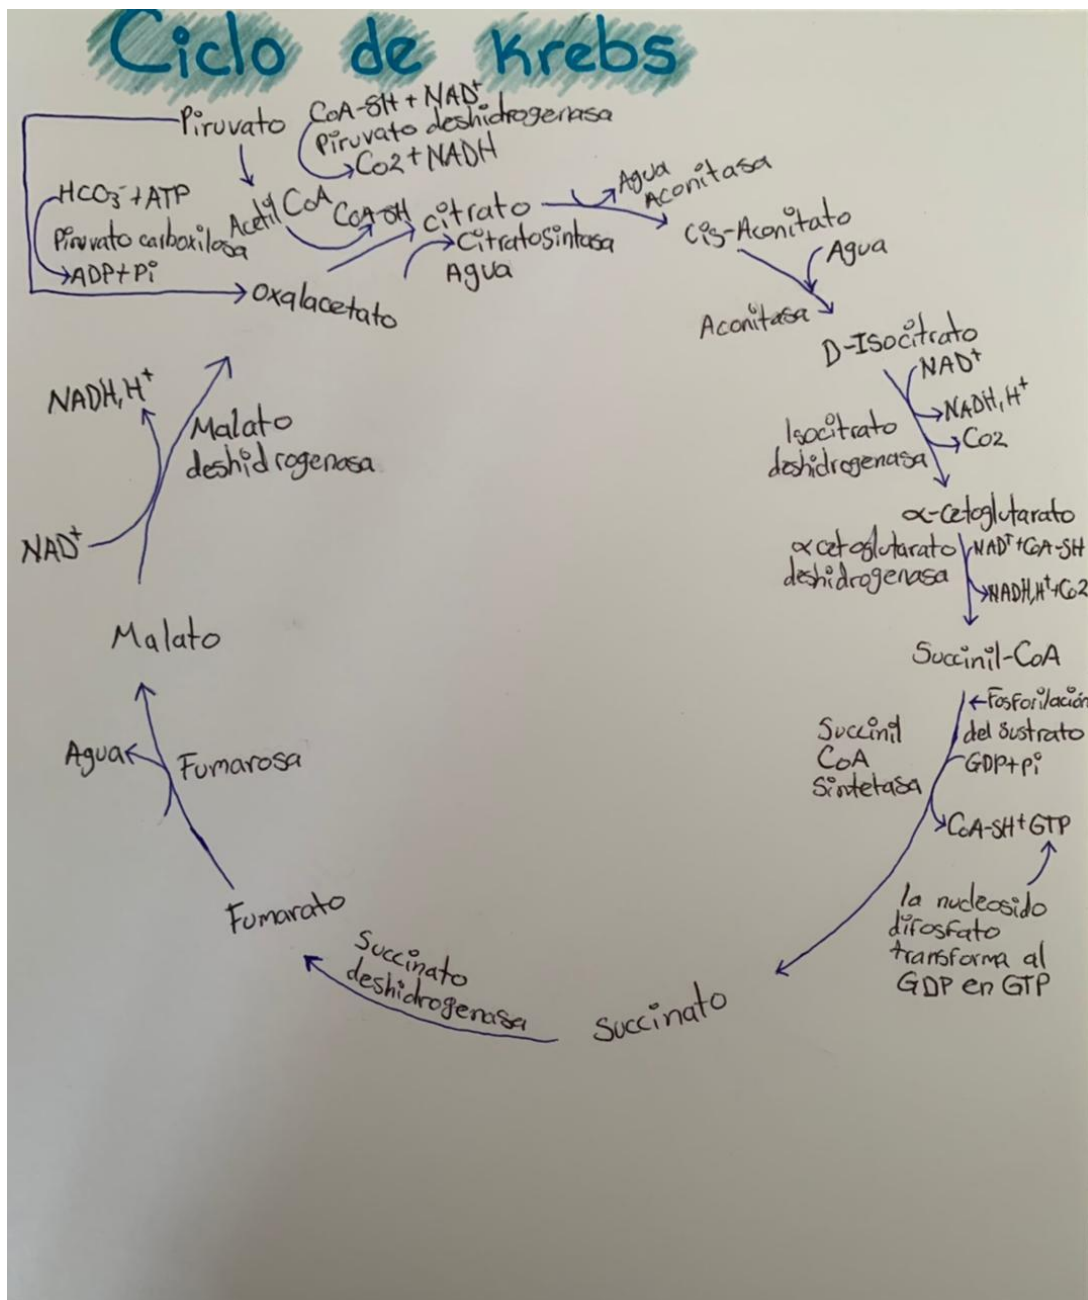 Ciclo de Krebs
Piruvato
CoA-SH + NAD+
Piruvato deshidrogenasa
Co2 + NADH
HCO3- + ATP
Piruvato carboxilosa
ADP+Pi
Acetil CoA
CoA-SH
Citrato
Citratosintasa
Agua
Oxalacetato
Agua
Aconitasa
Cis-Aconitato
Agua
Aconitasa
D-Isocitrato
NAD+
NADH, H+
Co2
Isocitrato
deshidrogenasa
α-cetoglutarato
α cetoglutarato
deshidrogenasa
NAD++CoA-SH
NADH,H++Co2
Succinil-CoA
←Fosforilación
del sustrato
GDP+Pi
Succinil
CoA
Sintetasa
CoA-SH+GTP
la nucleosido
difosfato
transforma al
GDP en GTP
Succinato
Succinato
deshidrogenasa
Fumarato
Fumarosa
Agua
Malato
Malato
deshidrogenasa
NAD+
NADH, H+